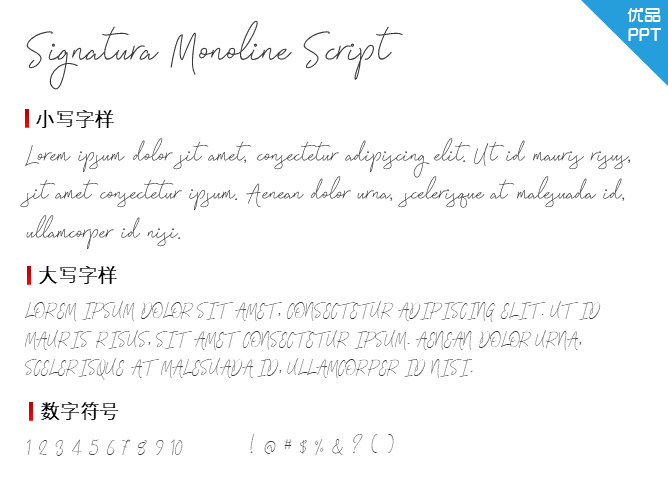 优品
PPT
Signatura Monoline Script
小写字样
Lorem ipsum dolor sit amet, consectetur adipiscing elit. Ut id mauris risus,
sit amet consectetur ipsum. Aenean dolor urna, scelerisque at malesuada id,
ullamcorper id nisi.
大写字样
LOREM IPSUM DOLOR SIT AMET, CONSECTETUR ADIPISCING ELIT. UT ID
MAURIS RISUS, SIT AMET CONSECTETUR IPSUM. AENEAN DOLOR URNA,
SCELERISQUE AT MALESUADA ID, ULLAMCORPER ID NISI.
数字符号
1 2 3 4 5 6 7 8 9 10 ! @ # $ % & ? ( )